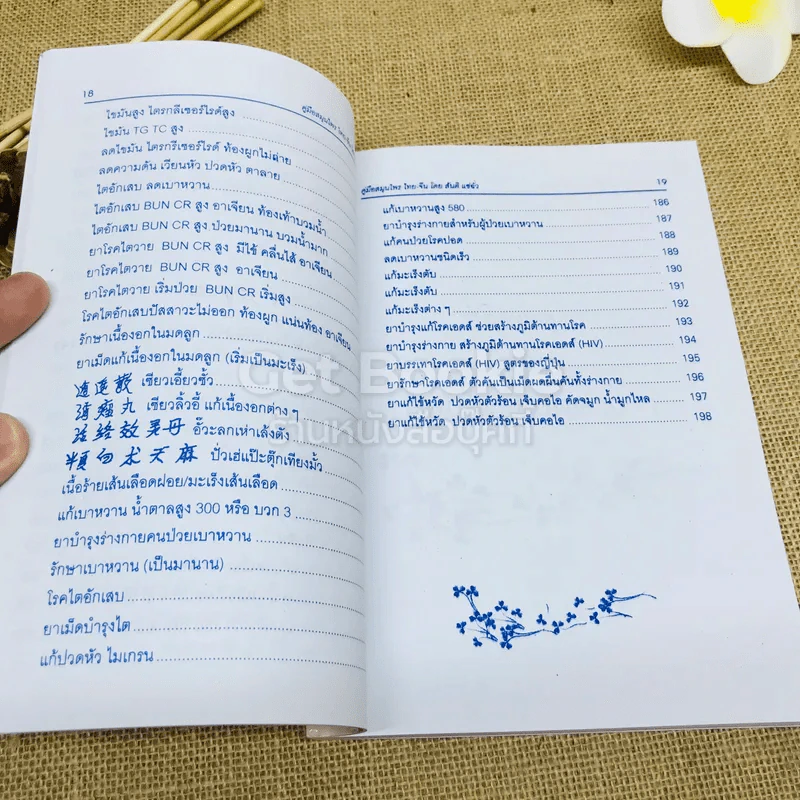 18
คู่มือสมุนไพร
ไขมันสูง ไตรกลีเซอร์ไรด์สูง
ไขมัน TG TC สูง
ลดไขมัน ไตรกรีเซอร์ไรด์ ท้องผูกไม่ถ่าย
ลดความดัน เวียนหัว ปวดหัว ตาลาย
ไตอักเสบ ลดเบาหวาน
ไตอักเสบ BUN CR สูง อาเจียน ท้องเท้าบวมน้ำ
ไตอักเสบ BUN CR สูง ป่วยมานาน บวมน้ำมาก
ยาโรคไตวาย BUN CR สูง มีไข้ คลื่นไส้ อาเจียน
ยาโรคไตวาย BUN CR สูง อาเจียน
ยาโรคไตวาย เริ่มป่วย BUN CR เริ่มสูง
โรคไตอักเสบปัสสาวะไม่ออก ท้องผูก แน่นท้อง อาเจียน
รักษาเนื้องอกในมดลูก
ยาเม็ดแก้เนื้องอกในมดลูก (เริ่มเป็นมะเร็ง)
逍遥散 เซียวเอี้ยวซั้ว
消瘤丸 เซียวลิ้วอี๊ แก้เนื้องอกต่างๆ
活络效灵丹 อั๊วะลกเห่าเล้งตัง
半夏白术天麻 ปั่วเฮ่แป๊ะตุ๊กเทียงมั้ว
เนื้อร้ายเส้นเลือดฝอย/มะเร็งเส้นเลือด
แก้เบาหวาน น้ำตาลสูง 300 หรือ บวก 3
ยาบำรุงร่างกายคนป่วยเบาหวาน
รักษาเบาหวาน (เป็นมานาน)
โรคไตอักเสบ
ยาเม็ดบำรุงไต
แก้ปวดหัว ไมเกรน
คู่มือสมุนไพร ไทย-จีน โดย สันติ แซ่ฉั่ว 19
แก้เบาหวานสูง 580 186
ยาบำรุงร่างกายสำหรับผู้ป่วยเบาหวาน 187
แก้คนป่วยโรคปอด 188
ลดเบาหวานชนิดเร็ว 189
แก้มะเร็งตับ 190
แก้มะเร็งตับ 191
แก้มะเร็งต่างๆ 192
ยาบำรุงแก้โรคเอดส์ ช่วยสร้างภูมิต้านทานโรค 193
ยาบำรุงร่างกาย สร้างภูมิต้านทานโรค (HIV) 194
ยาบรรเทาโรคเอดส์ (HIV) สูตรของญี่ปุ่น 195
ยารักษาโรคเอดส์ ตัวคันเป็นเม็ดผดผื่นคันทั้งร่างกาย 196
ยาแก้ไข้หวัด ปวดหัวตัวร้อน เจ็บคอไอ คัดจมูก น้ำมูกไหล 197
ยาแก้ไข้หวัด ปวดหัวตัวร้อน เจ็บคอไอ 198
Get Bookie
ร้านหนังสือบุ๊คกี้